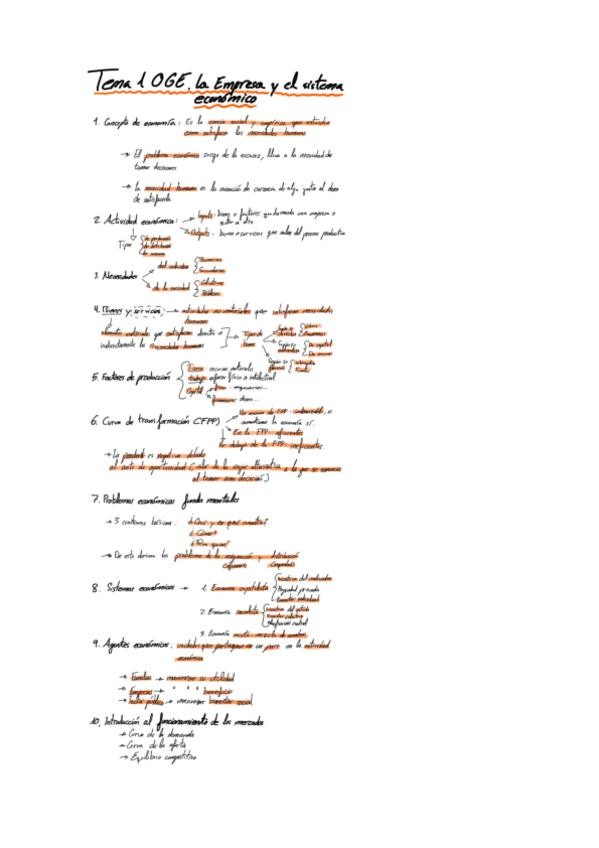 Tema 1 OGE. La Empresa y el sistema
económico
1. Concepto de economía: Es la ciencia social y empírica que estudia
como satisfacer las necesidades humanas
→ El problema económico surge de la escasez, lleva a la necesidad de
tomar decisiones
→ La necesidad humana es la sensación de carencia de algo junto al deseo
de satisfacerla
2. Actividad económica: → Inputs: bienes o factores que demanda una empresa o
→ Outputs: bienes o servicios que salen del proceso productivo
Tipos { de producción
de distribución
de consumo
3. Necesidades
del individuo { Primarias
Secundarias
de la sociedad { Colectivas
Públicas
4. Bienes y servicios: → actividades no materiales que satisfacen necesidades
humanas
elementos materiales que satisfacen directa o
indirectamente las necesidades humanas
Tipos de
bienes
De capital
De consumo
5. Factores de producción { Tierra: recursos naturales
trabajo: esfuerzo físico o intelectual
Capital
físico: maquinaria...
financiero: dinero...
6. Curva de transformación (FPP)
En la FPP: eficientes
Por debajo de la FPP: ineficientes.
→ La pendiente es negativa debido
al coste de oportunidad (valor de la mejor alternativa a la que se renuncia
al tomar una decisión)
7. Problemas económicos fundamentales
→ 3 cuestiones básicas: ¿Qué y en qué cuantía?
¿Cómo?
¿Para quién?
→ De esto derivan los problemas de la asignación y distribución
8. Sistemas económicos → 1. Economía capitalista { Iniciativa del individuo
Propiedad privada
2. Economía socialista { Iniciativa del estado
Planificación central
3. Economía mixta: mezcla de ambas
9. Agentes económicos: unidades que participan en un país en la actividad
económica
→ Familias → maximizar su utilidad
→ Empresas → " " beneficio
→ Sector público → maximizar bienestar social
10. Introducción al funcionamiento de los mercados
→ Curva de la demanda
→ Curva de la oferta
→ Equilibrio competitivo